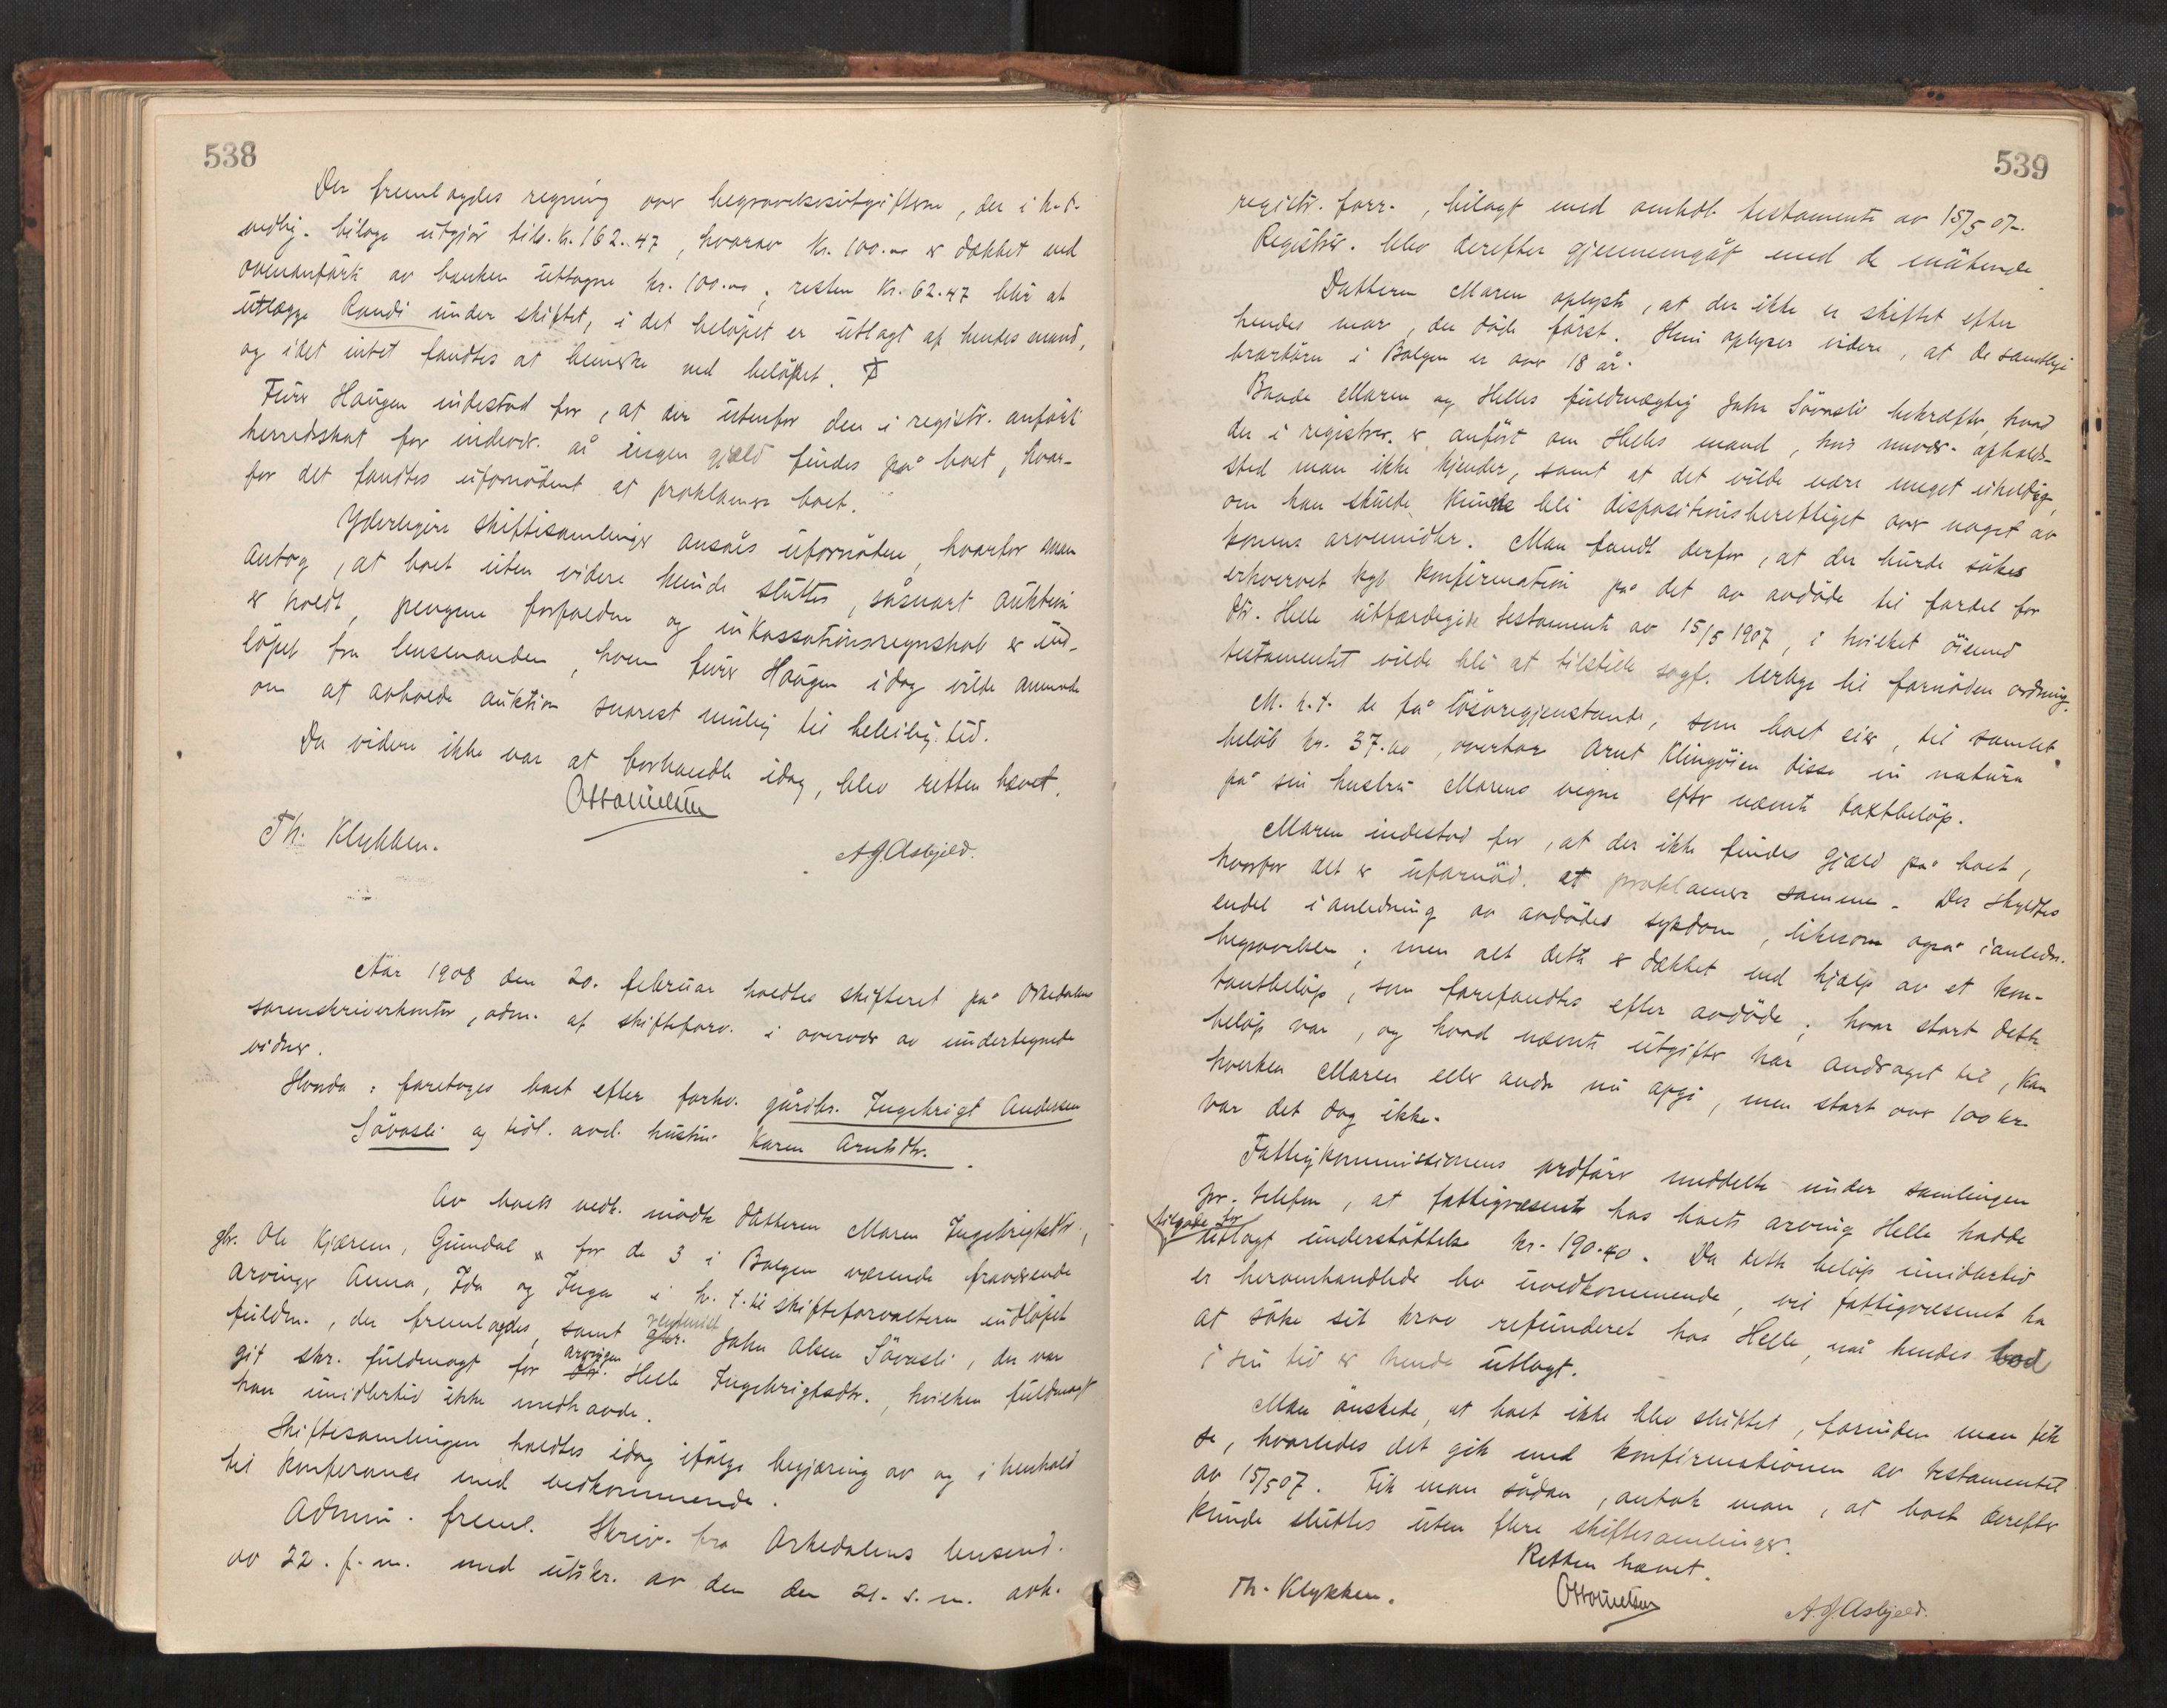 538
Der fremlagdes regning over begravelsesutgifterne, der i h.t.
vedlig. bilage utgjør tils. kr. 162.47, hvorav kr. 100.00 er dækket ved
ovenanførte av banken uttagne kr. 100.00; resten kr. 62.47 blir at
utlægge Randi under skiftet, i det beløpet er utlagt af hendes mand,
og idet intet fandtes at bemerke ved beløpet.
Fuer Haugen indestod for, at der utenfor den i registr. anførte
herredskat for indevær. år ingen gjæld findes på boet, hvor-
for det fandtes ufornødent at proklamere boet.
Yderligere skiftesamlinger ansåes ufornøden, hvorfor man
antog, at boet uten videre kunde sluttes, såsnart auktion
er holdt, pengene forfaldne og inkassationsregnskab er ind-
løpet fra lensmanden, hvem fuer Haugen idag vilde anmode
om at avholde auktion snarest mulig til beleilig tid.
Da videre ikke var at forhandle idag, blev retten hævet.
Otto Nielsen
Th. Klykken.
A J Asbjeld.
Aar 1908 den 20. februar holdtes skifteret på Orkedalens
sorenskriverkontor, adm. af skifteforv. i overvær av undertegnede
vidner.
Hvorda: foretoges boet efter forhv. gårdbr. Ingebrigt Andersen
Sövasli og tidl. avd. hustru Karen Arntsdtr.
Av boets vedk. mødte datteren Maren Ingebrigtsdtr.,
gbr. Ole Kjæren, Gundal for de 3 i Bolgen værende fraværende
arvinger Anna, Ida og Inga i h. t. til skifteforvalteren indløpet
fuldm., der fremlagdes, samt gbr. John Olsen Sövasli, der var
git skr. fuldmagt for arvingen Helle Ingebrigtsdtr., hvilken fuldmagt
han imidlertid ikke medhavde.
Skiftesamlingen holdtes idag ifølge begjæring av og i henhold
til konferance med vedkommende.
Admin. freml. skriv. fra Orkedalens lensmd.
av 22. f. m. med utskr. av den den 21. s. m. avh.
539
registr. forr., bilagt med omhdl. testamente av 15/5 07.
Registr. blev derefter gjennemgåt med de møtende.
Datteren Maren oplyste, at der ikke er skiftet efter
hendes mor, der døde først. Hun oplyser videre, at de samtlige
brorbørn i Bolgen er over 18 år.
Baade Maren og Helles fuldmægtig John Sövasli bekræfter, hvad
der i registrer. er anført om Helles mand, hvis nuvær. opholds-
sted man ikke kjender, samt at det vilde være meget uheldig,
om han skulde kunde bli dispositionsberettiget over noget av
konens arvemidler. Man fandt derfor, at der burde søkes
erhvervet kgl. konfirmation på det av avdøde til fordel for
dtr. Helle utfærdigede testamente av 15/5 1907, i hvilket øiemed
testamentet vilde bli at tilstille sagf. Lerbye til fornøden ordning.
M. h. t. de få løsøregjenstande, som boet eier, til samlet
beløb kr. 37.00, overtar Arnt Klingøien disse in natura
på sin hustru Marens vegne efter nævnte taxtbeløp.
Maren indestod for, at der ikke findes gjæld på boet,
hvorfor det er ufornød. at proklamere samme. Der skyldtes
endel i anledning av avdødes sykdom, likesom også i anledn.
begravelsen; men alt dette er dækket ved hjælp av et kon-
tantbeløp, som forefandtes efter avdøde; hvor stort dette
beløp var, og hvad nævnte utgifter har andraget til, kan
hverken Maren eller andre nu opgi, men stort over 100 kr.
var det dog ikke.
Fattigkommissionens ordfører meddelte under samlingen
pr. telefon, at fattigvæsenet hos boets arving Helle hadde
tilgode for
utlagt understøttelse kr. 190.40. Da dette beløp imidlertid
er heromhandlede bo uvedkommende, vil fattigvæsenet ha
at søke sit krav refunderet hos Helle, når hendes lod
i sin tid er hende utlagt.
Man ønskede, at boet ikke blev sluttet, forinden man fik
se, hvorledes det gik med konfirmationen av testamentet
av 15/5 07. Fik man sådan, antok man, at boet derefter
kunde sluttes uten flere skiftesamlinger.
Retten hævet.
Th. Klykken.
Otto Nielsen
A. J. Asbjeld.